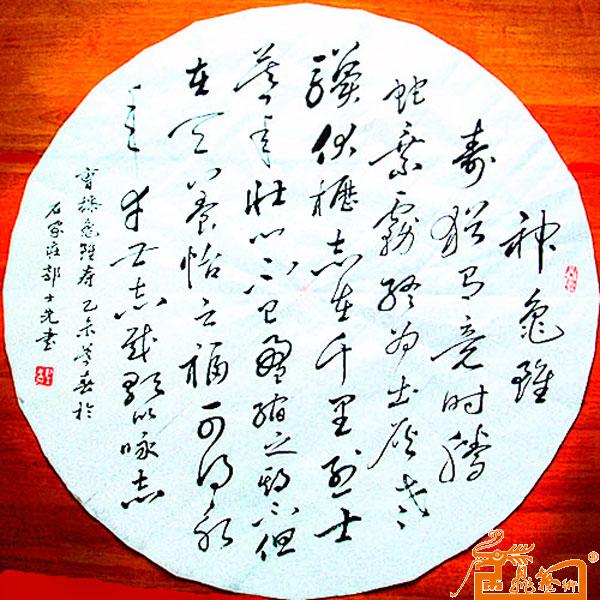 神龟雖
寿犹有竟时腾
蛇乘雾終为土灰老
骥伏櫪志在千里烈士
暮年壮心不已盈缩之期不但
在天养怡之福可得永
年幸甚至哉歌以咏志
曹操龟雖寿乙未暮春於
石家庄郭士書